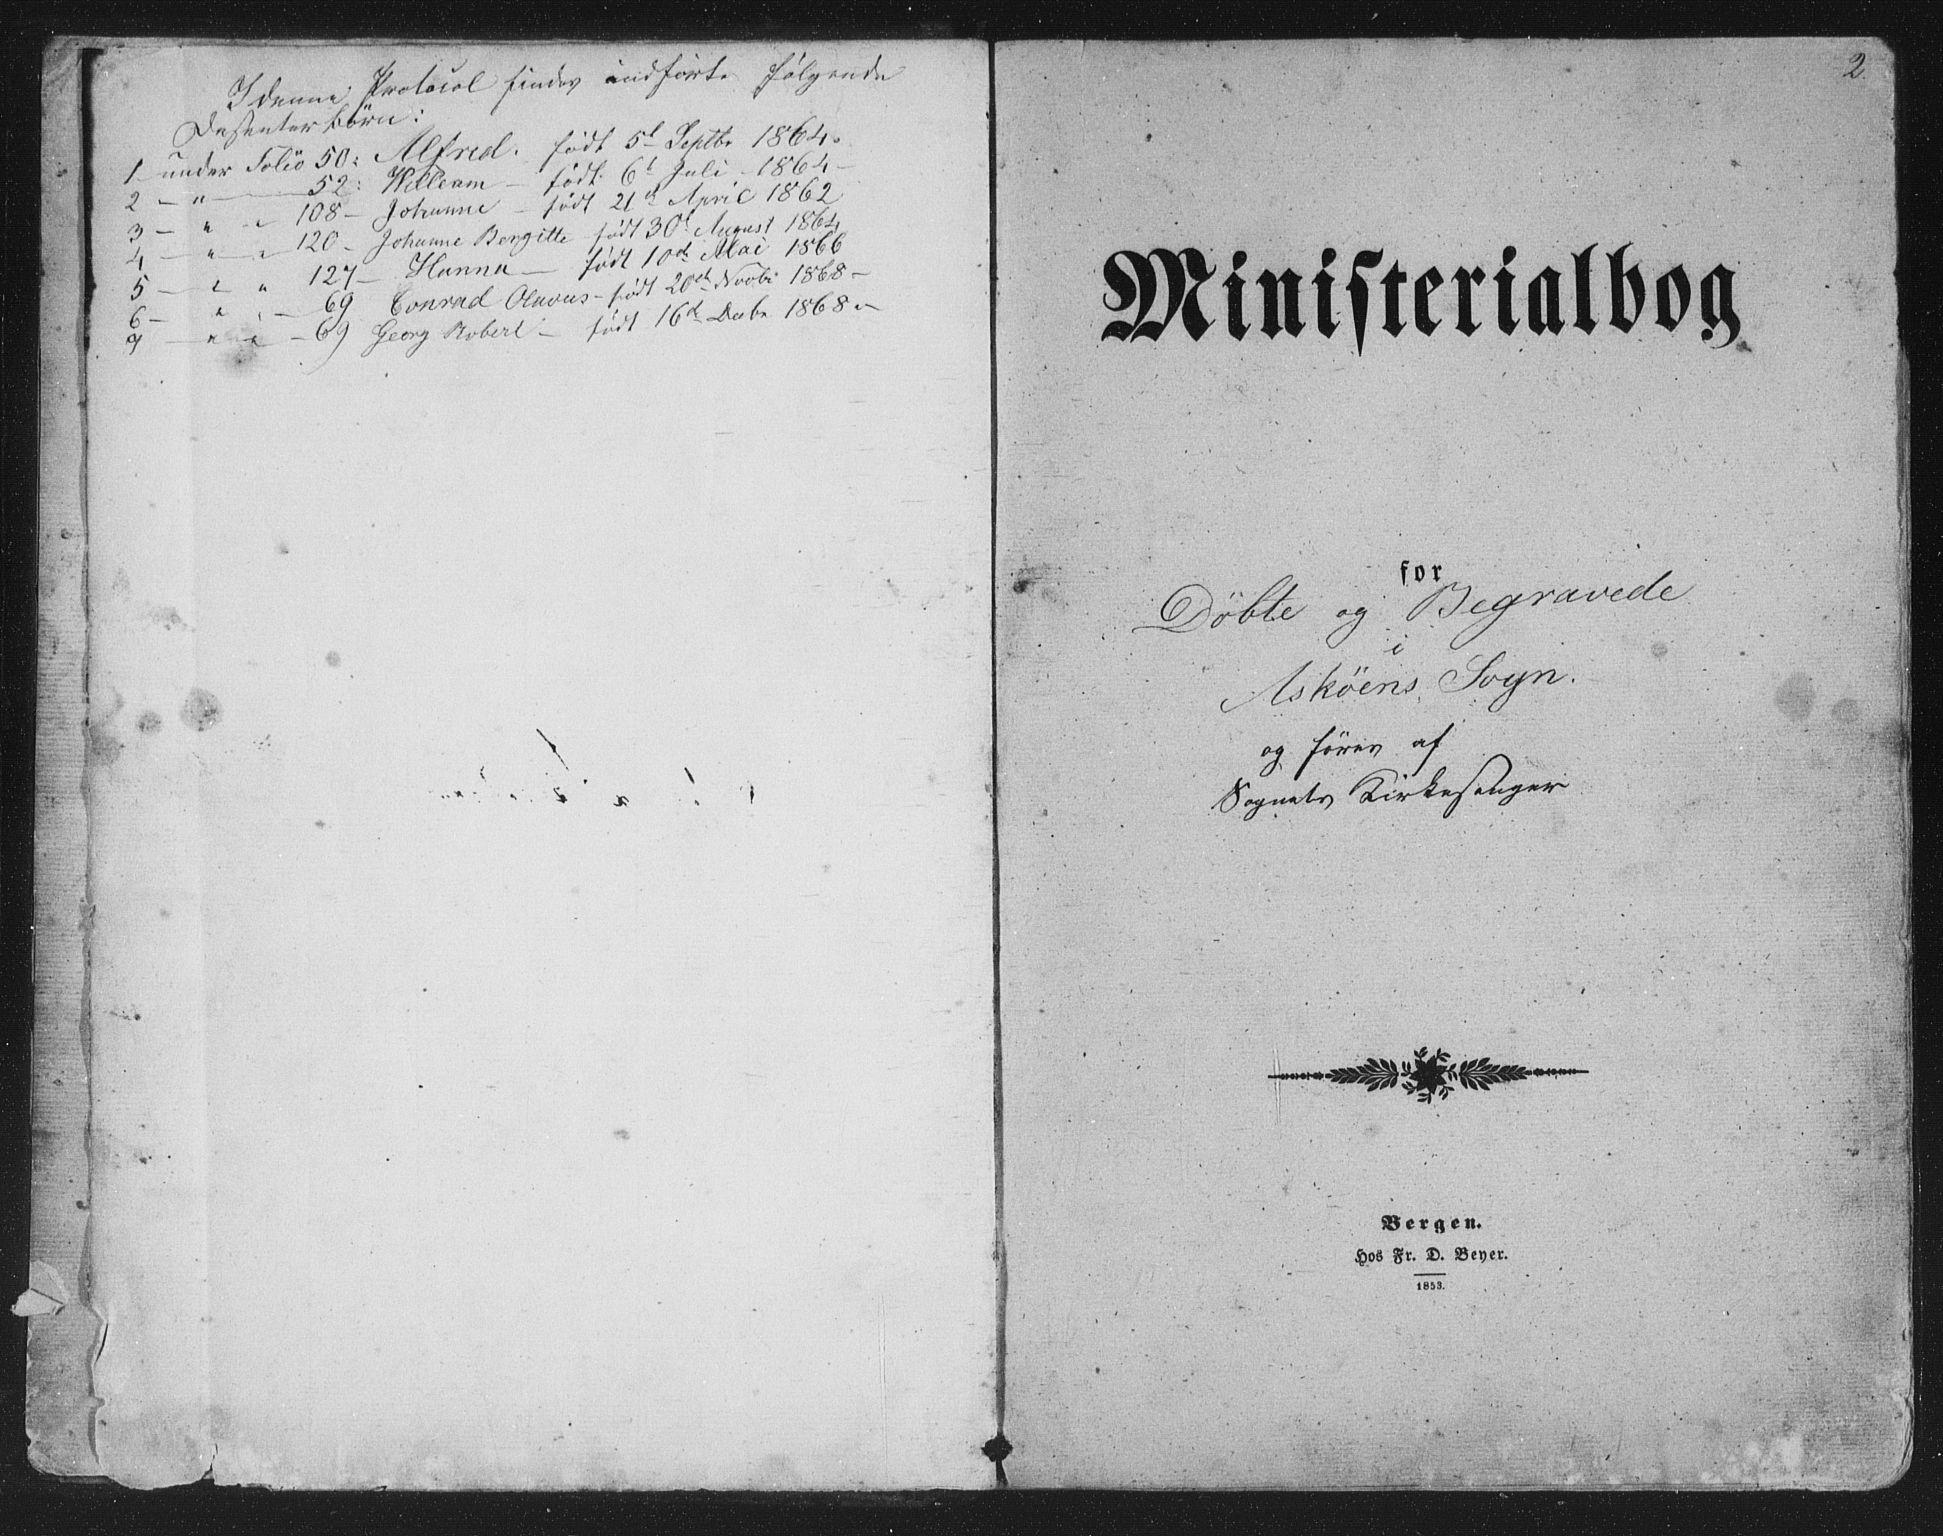 I denne Protocol findes indførte følgende
Desenterbörn:
1 under Folio 50: Alfred. født 5t Septbr 1864.
2 — " — 52: William — født 6t Juli 1864 —
3 — " " 108 — Johanne — født 21d April 1862
4 — " " 120 — Johanne Bergitte født 30t August 1864
5 — " " 127 — Hanna — født 10d Mai 1866
6 — " " — 69 Conrad Olavus — født 20d Novbr 1868 —
7 — " " — 69 Georg Robert — født 16d Decbr 1868 —
2
Ministerialbog
for
Döbte og Begravede
i
Asköens Sogn.
og føres af
Sognets Kirkesanger
Bergen.
Hos Fr. D. Beyer.
1853.